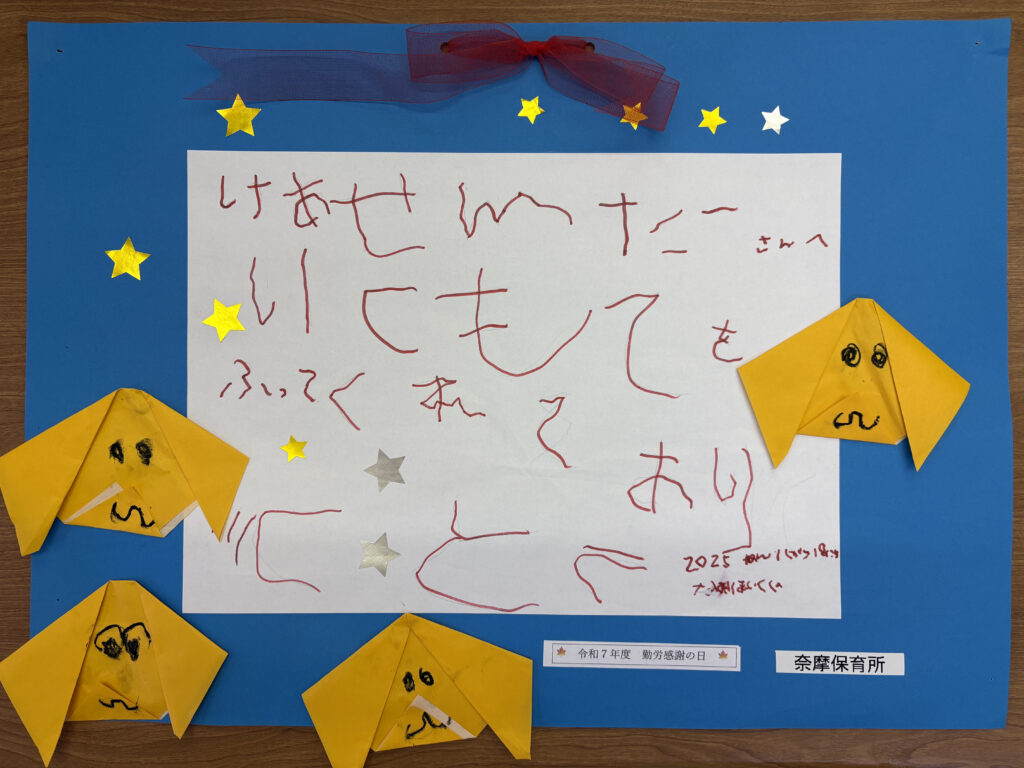 けあせんたー さんへ
いつもてを
ふってくれて
あり
がとう
2025 ねん 11がつ 18にち
令和7年度 勤労感謝の日
奈摩保育所